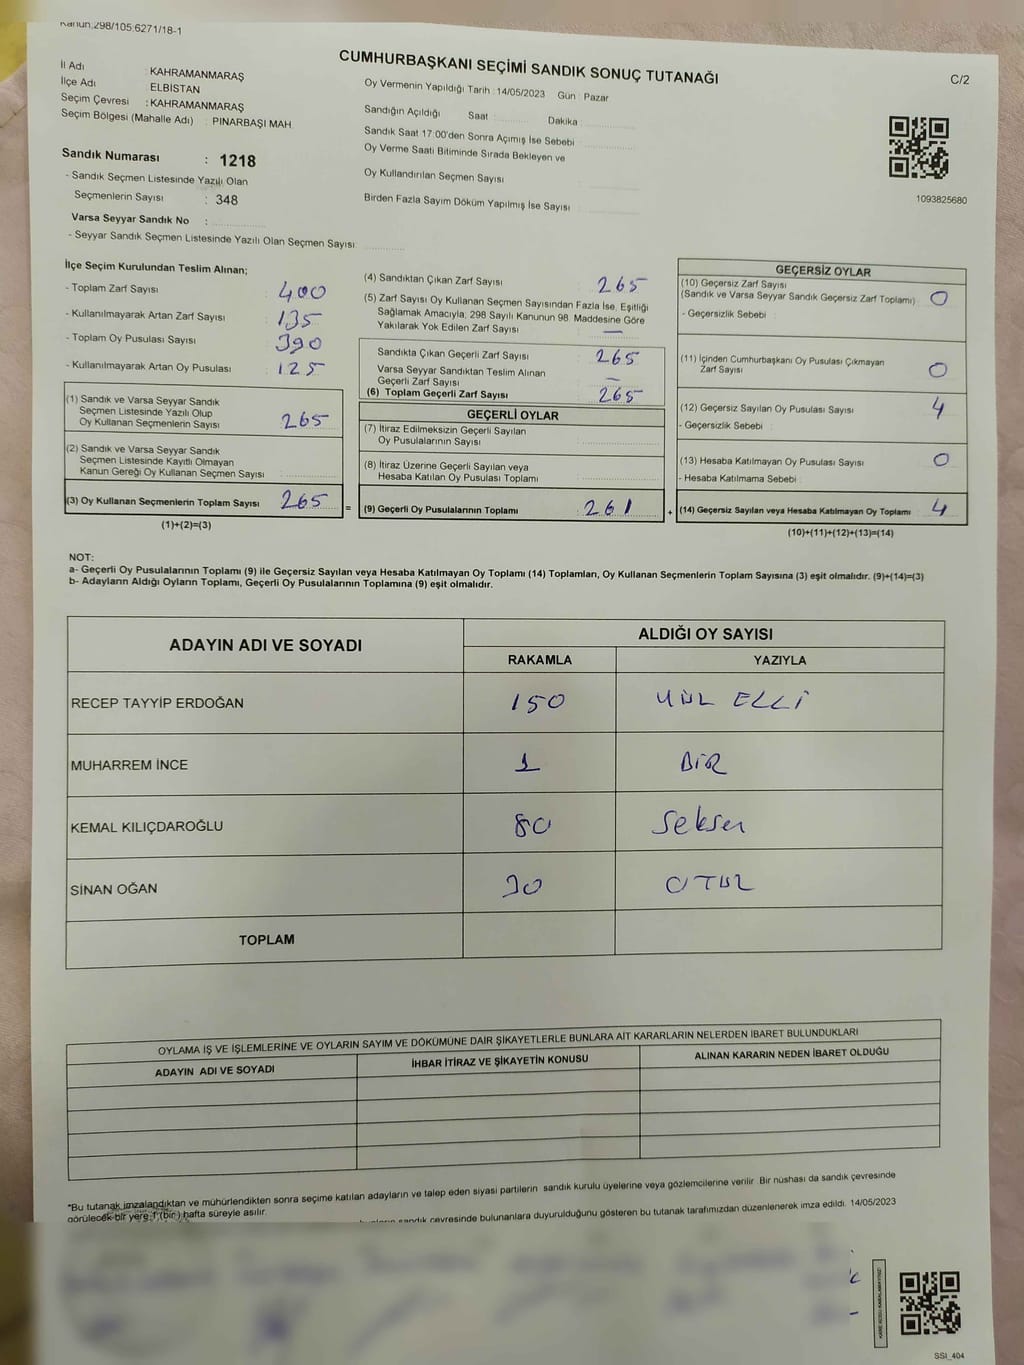 Kanun:298/105,6271/18-1
CUMHURBAŞKANI SEÇİMİ SANDIK SONUÇ TUTANAĞI
C/2
İl Adı : KAHRAMANMARAŞ
İlçe Adı : ELBİSTAN
Seçim Çevresi : KAHRAMANMARAŞ
Seçim Bölgesi (Mahalle Adı) : PINARBAŞI MAH.
Sandık Numarası : 1218
- Sandık Seçmen Listesinde Yazılı Olan
Seçmenlerin Sayısı : 348
Varsa Seyyar Sandık No :
- Seyyar Sandık Seçmen Listesinde Yazılı Olan Seçmen Sayısı:
Oy Vermenin Yapıldığı Tarih : 14/05/2023 Gün : Pazar
Sandığın Açıldığı Saat Dakika
Sandık Saat 17:00'den Sonra Açımış İse Sebebi
Oy Verme Saati Bitiminde Sırada Bekleyen ve
Oy Kullandırılan Seçmen Sayısı
Birden Fazla Sayım Döküm Yapılmış İse Sayısı
1093825680
İlçe Seçim Kurulundan Teslim Alınan;
- Toplam Zarf Sayısı : 400
- Kullanılmayarak Artan Zarf Sayısı : 135
- Toplam Oy Pusulası Sayısı : 390
- Kullanılmayarak Artan Oy Pusulası : 125
(1) Sandık ve Varsa Seyyar Sandık
Seçmen Listesinde Yazılı Olup
Oy Kullanan Seçmenlerin Sayısı 265
(2) Sandık ve Varsa Seyyar Sandık
Seçmen Listesinde Kayıtlı Olmayan
Kanun Gereği Oy Kullanan Seçmen Sayısı :
(3) Oy Kullanan Seçmenlerin Toplam Sayısı 265
(1)+(2)=(3)
=
(4) Sandıktan Çıkan Zarf Sayısı : 265
(5) Zarf Sayısı Oy Kullanan Seçmen Sayısından Fazla İse, Eşitliği
Sağlamak Amacıyla, 298 Sayılı Kanunun 98. Maddesine Göre
Yakılarak Yok Edilen Zarf Sayısı : —
Sandıkta Çıkan Geçerli Zarf Sayısı : 265
Varsa Seyyar Sandıktan Teslim Alınan
Geçerli Zarf Sayısı : —
(6) Toplam Geçerli Zarf Sayısı : 265
GEÇERLİ OYLAR
(7) İtiraz Edilmeksizin Geçerli Sayılan
Oy Pusulalarının Sayısı
(8) İtiraz Üzerine Geçerli Sayılan veya
Hesaba Katılan Oy Pusulası Toplamı
(9) Geçerli Oy Pusulalarının Toplamı : 261
+
GEÇERSİZ OYLAR
(10) Geçersiz Zarf Sayısı
(Sandık ve Varsa Seyyar Sandık Geçersiz Zarf Toplamı) : 0
- Geçersizlik Sebebi :
(11) İçinden Cumhurbaşkanı Oy Pusulası Çıkmayan
Zarf Sayısı : 0
(12) Geçersiz Sayılan Oy Pusulası Sayısı : 4
- Geçersizlik Sebebi :
(13) Hesaba Katılmayan Oy Pusulası Sayısı : 0
- Hesaba Katılmama Sebebi :
(14) Geçersiz Sayılan veya Hesaba Katılmayan Oy Toplamı : 4
(10)+(11)+(12)+(13)=(14)
NOT:
a- Geçerli Oy Pusulalarının Toplamı (9) ile Geçersiz Sayılan veya Hesaba Katılmayan Oy Toplamı (14) Toplamları, Oy Kullanan Seçmenlerin Toplam Sayısına (3) eşit olmalıdır. (9)+(14)=(3)
b- Adayların Aldığı Oyların Toplamı, Geçerli Oy Pusulalarının Toplamına (9) eşit olmalıdır.
ADAYIN ADI VE SOYADI
ALDIĞI OY SAYISI
RAKAMLA YAZIYLA
RECEP TAYYİP ERDOĞAN 150 YÜZ ELLİ
MUHARREM İNCE 1 BİR
KEMAL KILIÇDAROĞLU 80 Seksen
SİNAN OĞAN 30 OTUZ
TOPLAM
OYLAMA İŞ VE İŞLEMLERİNE VE OYLARIN SAYIM VE DÖKÜMÜNE DAİR ŞİKAYETLERLE BUNLARA AİT KARARLARIN NELERDEN İBARET BULUNDUKLARI
ADAYIN ADI VE SOYADI İHBAR İTİRAZ VE ŞİKAYETİN KONUSU ALINAN KARARIN NEDEN İBARET OLDUĞU
*Bu tutanak imzalandıktan ve mühürlendikten sonra seçime katılan adayların ve talep eden siyasi partilerin sandık kurulu üyelerine veya gözlemcilerine verilir. Bir nüshası da sandık çevresinde
görülecek bir yere 1 (bir) hafta süreyle asılır.
sandık çevresinde bulunanlara duyurulduğunu gösteren bu tutanak tarafımızdan düzenlenerek imza edildi. 14/05/2023
SSI_404